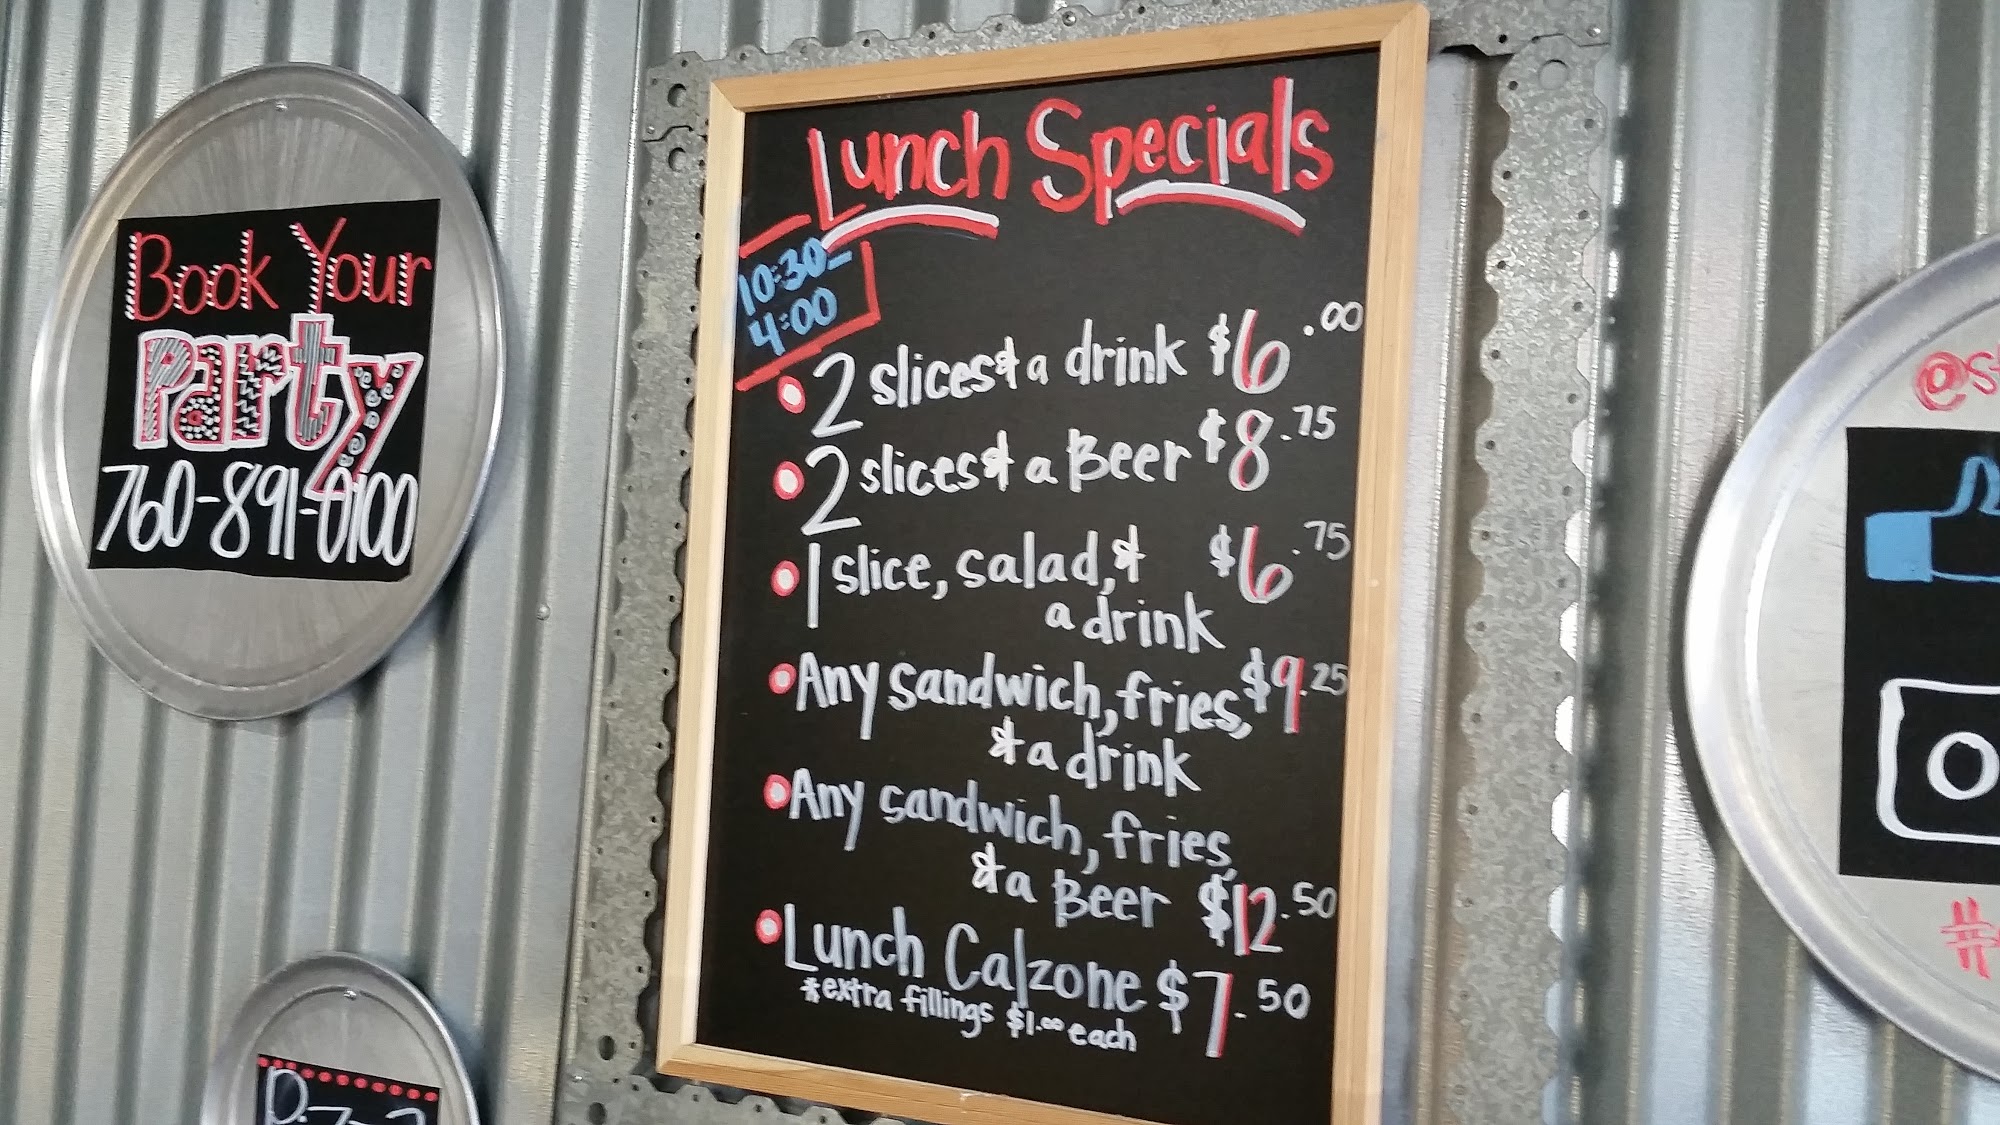 Book Your
Party
760-891-0100
Lunch Specials
10:30-
4:00
2 slices & a drink $6.00
2 slices & a Beer $8.75
1 slice, salad, & $6.75
a drink
Any sandwich, fries, $9.25
& a drink
Any sandwich, fries,
& a Beer $12.50
Lunch Calzone $7.50
*extra fillings $1.00 each